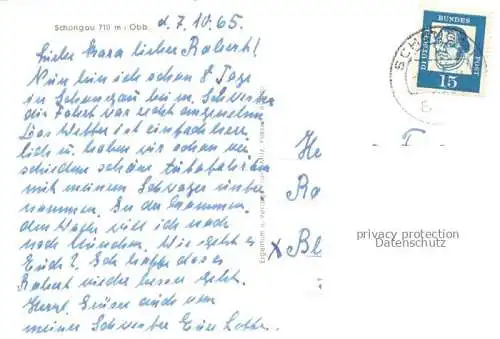 Schongau 710 m. Obb.
d. 7.10.65.
Liebe Mara lieber Robert!
Nun bin ich schon 8 Tage
in Schongau bei m. Schwester
die Fahrt war recht angenehm
Das Wetter ist einfach herr
lich u. haben wir schon ver
schiedene schöne Autofahrten
mit meinem Schwager unter
nommen. In der kommen
den Woche will ich nach
noch München. Wie geht es
Euch? Ich hoffe dass es
Robert wieder besser geht.
Herzl. Grüsse auch von
meiner Schwester Eure Lotte.
DEUTSCHE BUNDESPOST
15
He
F
Ro
x Bl
privacy protection
Datenschutz